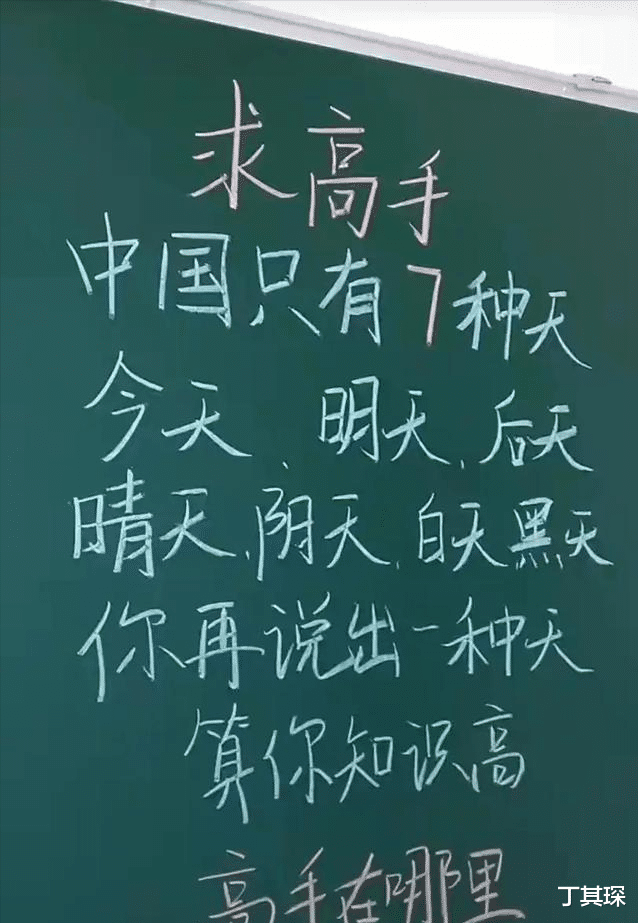 求高手
中国只有7种天
今天、明天、后天
晴天、阴天、白天黑天
你再说出一种天
算你知识高
高手在哪里
丁其琛